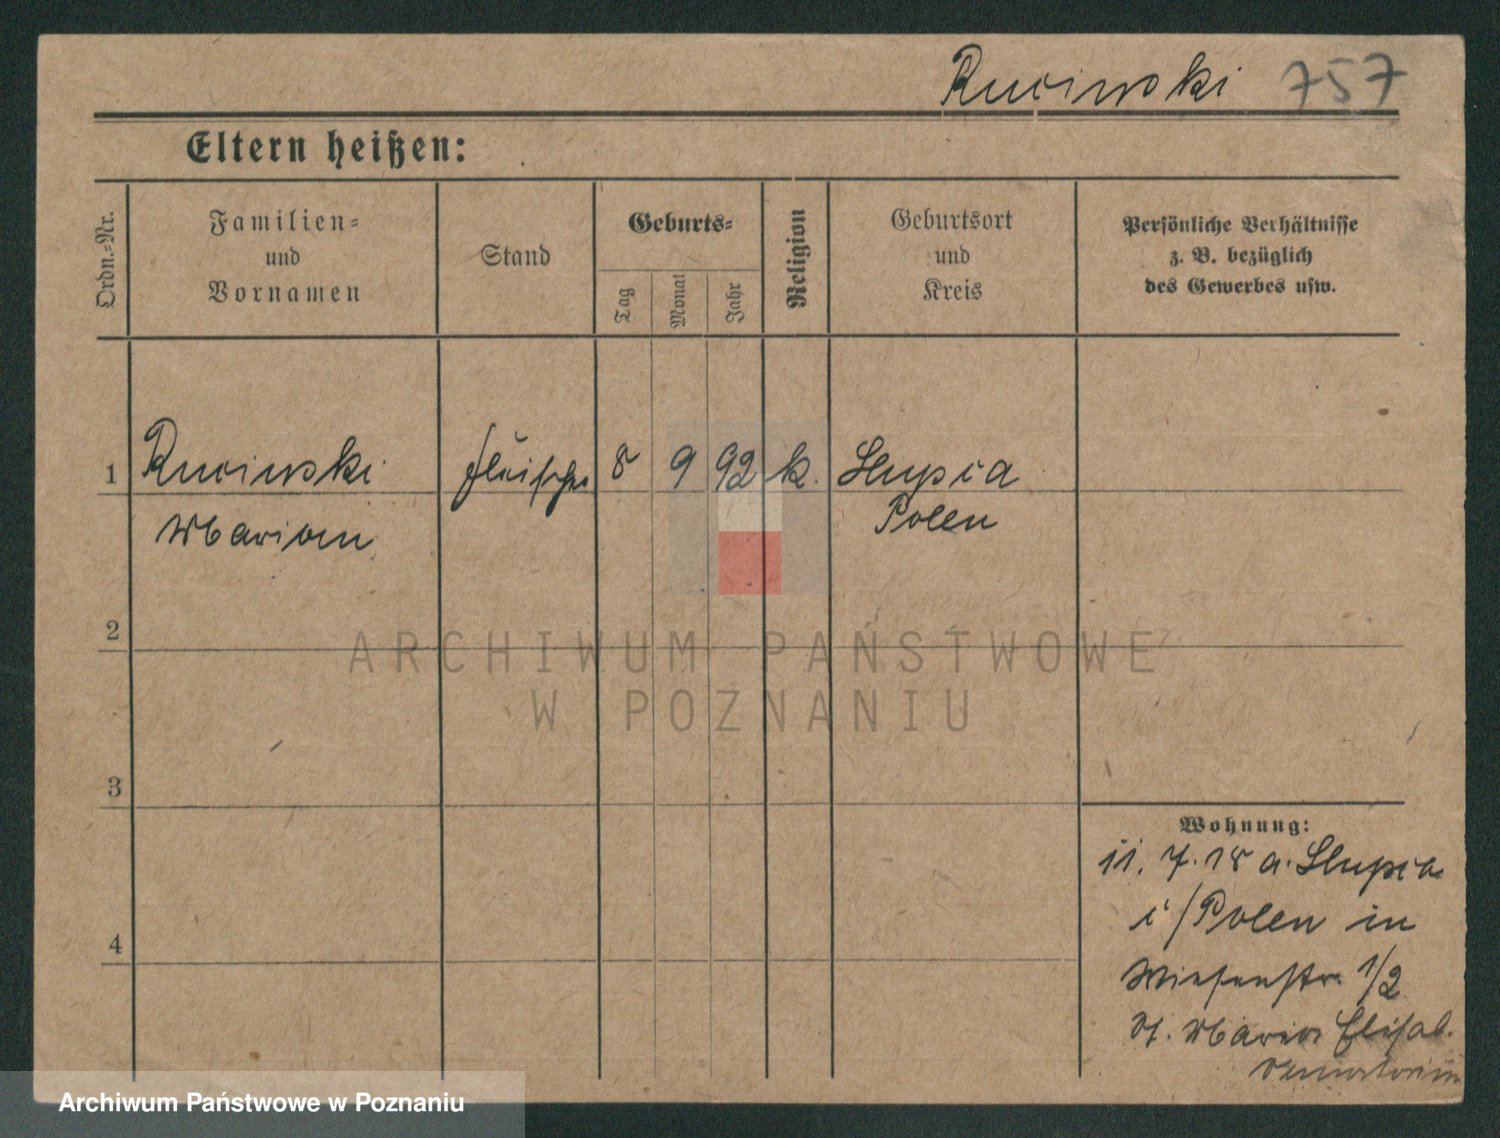 Rucinski 757
Eltern heißen:
Ordn.-Nr.
Familien-
und
Vornamen
Stand
Geburts-
Tag
Monat
Jahr
Religion
Geburtsort
und
Kreis
Persönliche Verhältnisse
z. B. bezüglich
des Gewerbes usw.
1 Rucinski Fleischer 8 9 92 k. Slupia
Marian Polen
2
ARCHIWUM PAŃSTWOWE
W POZNANIU
3
Wohnung:
11. 7. 18 a. Slupia
i/Polen in
4
Wiesenstr. 1/2
St. Maria Elisab.
Archiwum Państwowe w Poznaniu